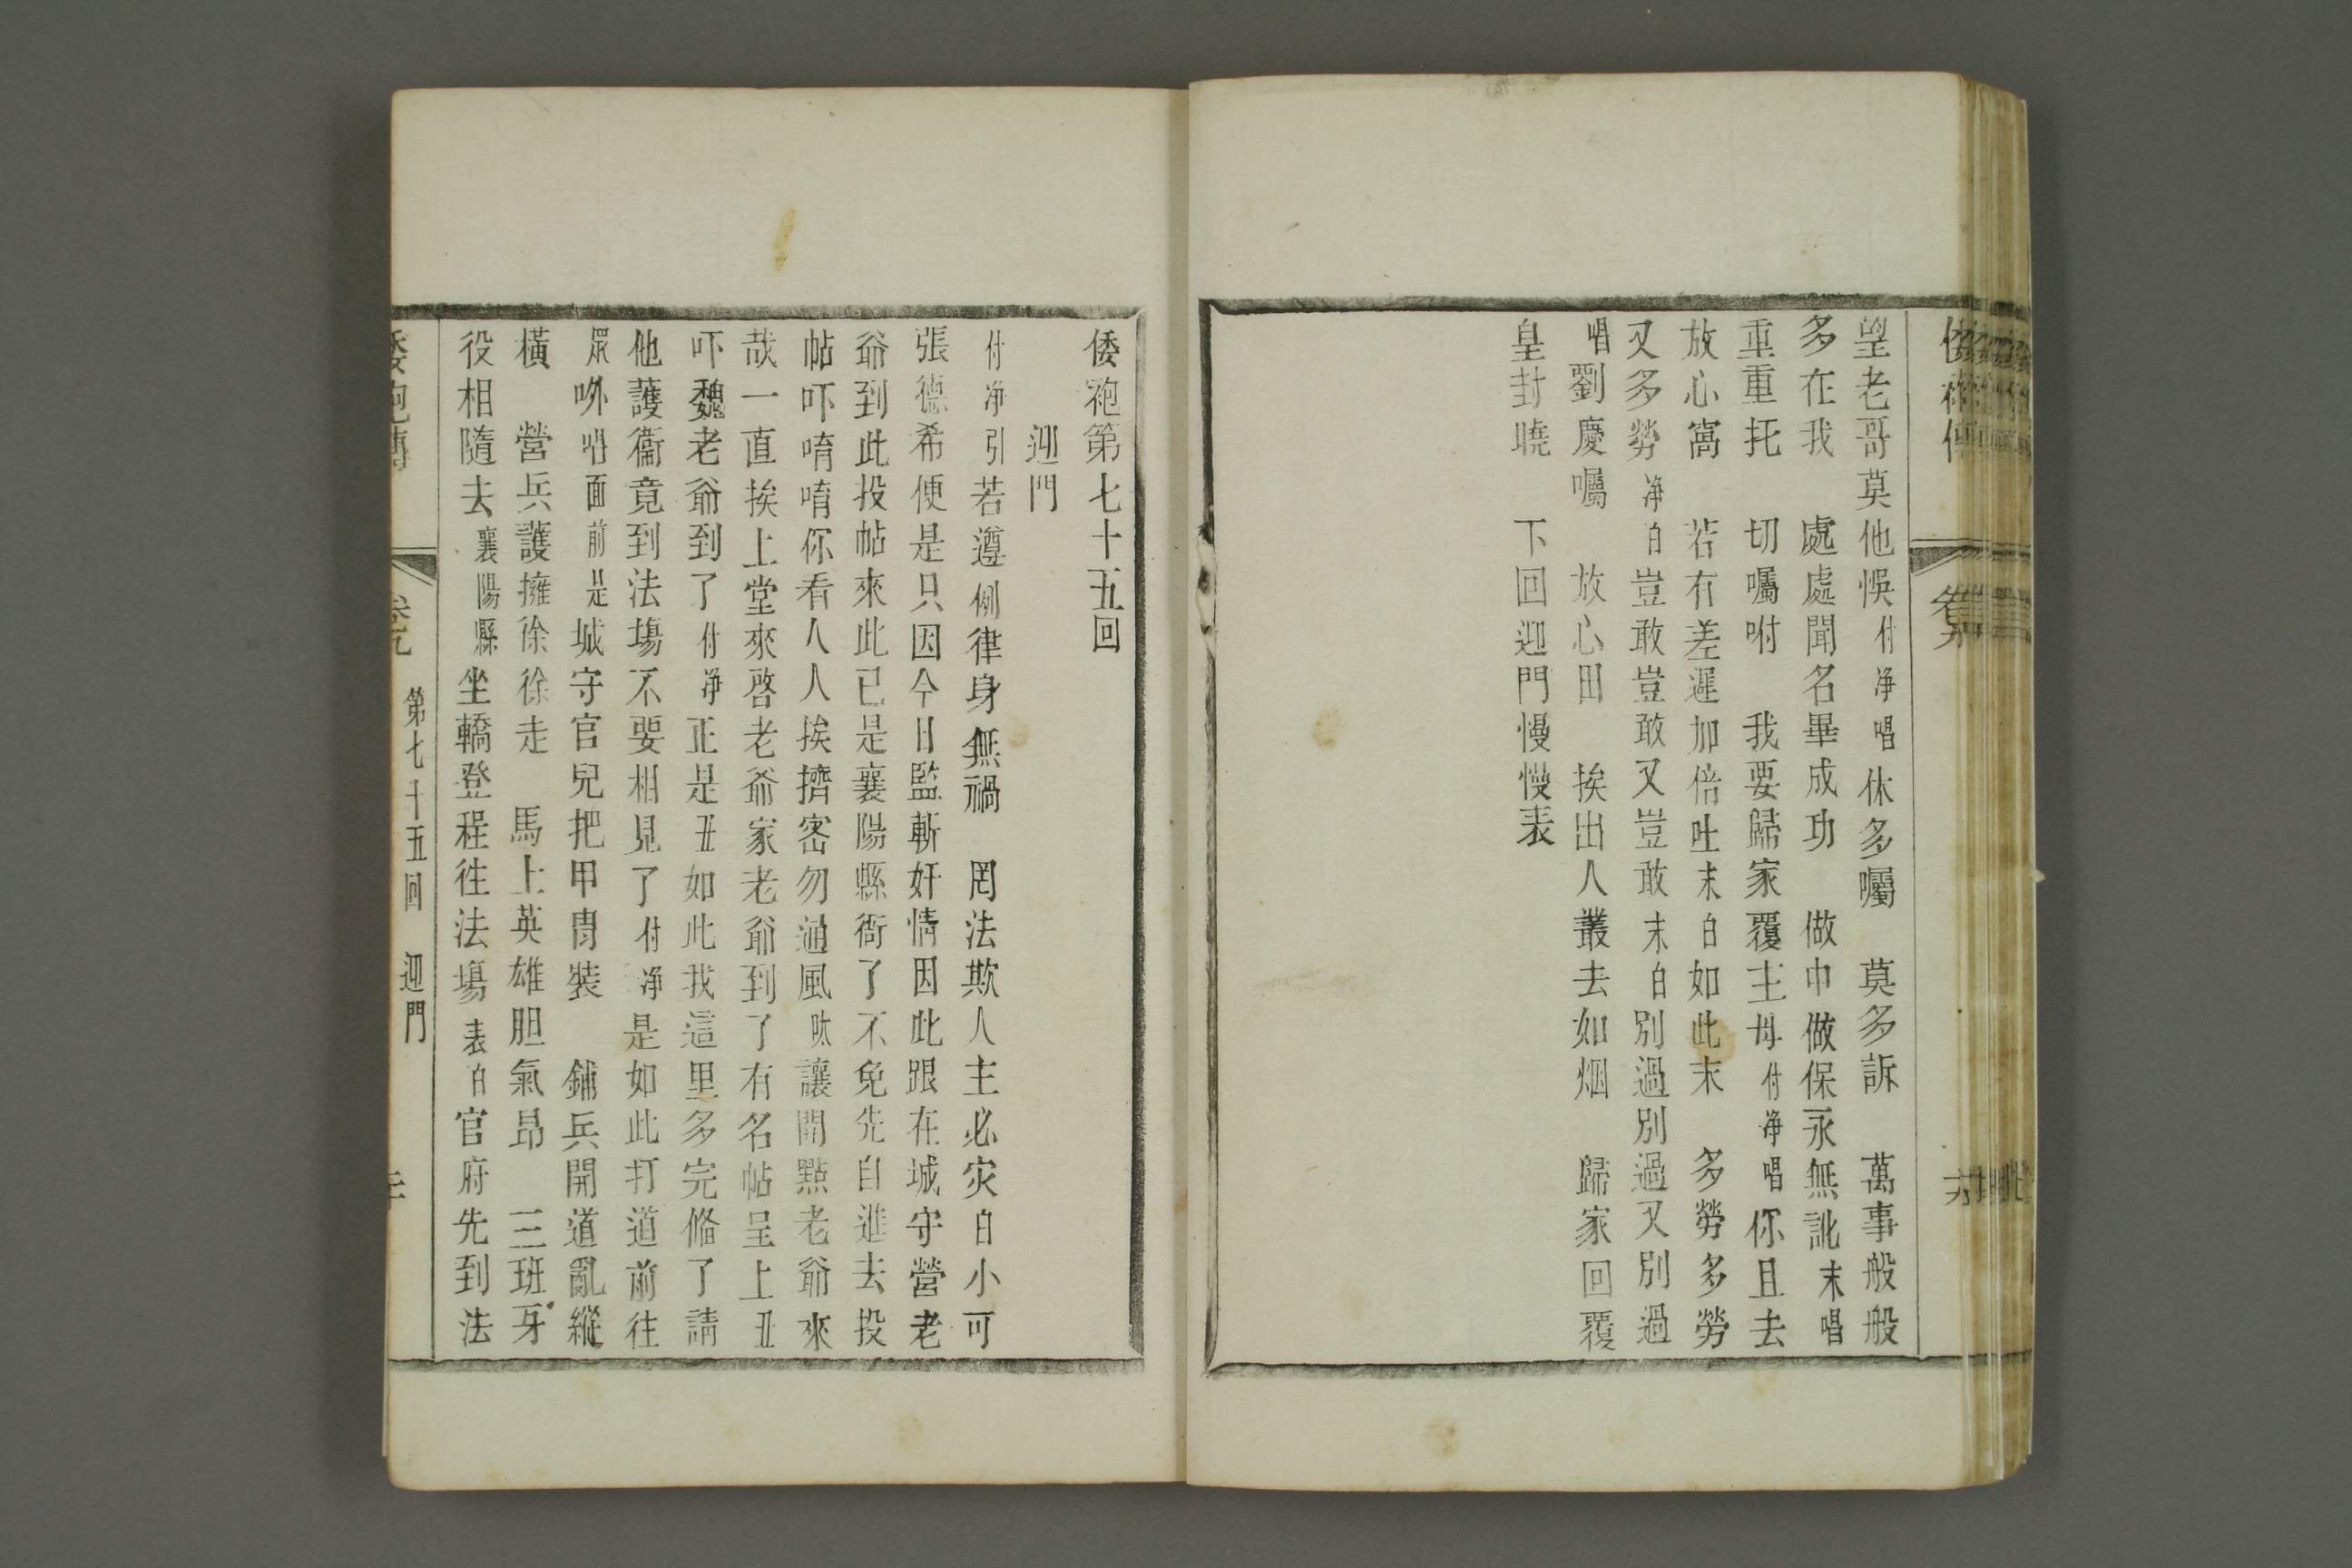 望老哥莫他悞付净唱休多囑　莫多訴　萬事般般
多在我　處處聞名畢成功　做中做保永無訛末唱
重重托　切囑咐　我要歸家覆主母付净唱你且去
放心窩　若有差遲加倍吐末白如此末　多勞多勞
又多勞净白豈敢豈敢又豈敢末白別過別過又別過
唱劉慶囑　放心田　挨出人叢去如烟　歸家回覆
皇封曉　下回迎門慢慢表
倭袍第七十五回
迎門
付净引若遵例律身無禍　罔法欺人主必灾白小可
張德希便是只因今日監斬奸情因此跟在城守營老
爺到此投帖來此已是襄陽縣衙了不免先自進去投
帖吓唷唷你看人人挨擠密勿通風呔讓開點老爺來
哉一直挨上堂來啓老爺家老爺到了有名帖呈上丑
吓魏老爺到了付净正是丑如此我這里多完俻了請
他護衞竟到法塲不要相見了付净是如此打道前往
眾咻唱面前是城守官兒把甲冑裝　鋪兵開道亂縱
橫　營兵護擁徐徐走　馬上英雄胆氣昂　三班牙
役相隨去襄陽縣坐轎登程往法塲表白官府先到法
倭袍傳
第七十五回　迎門